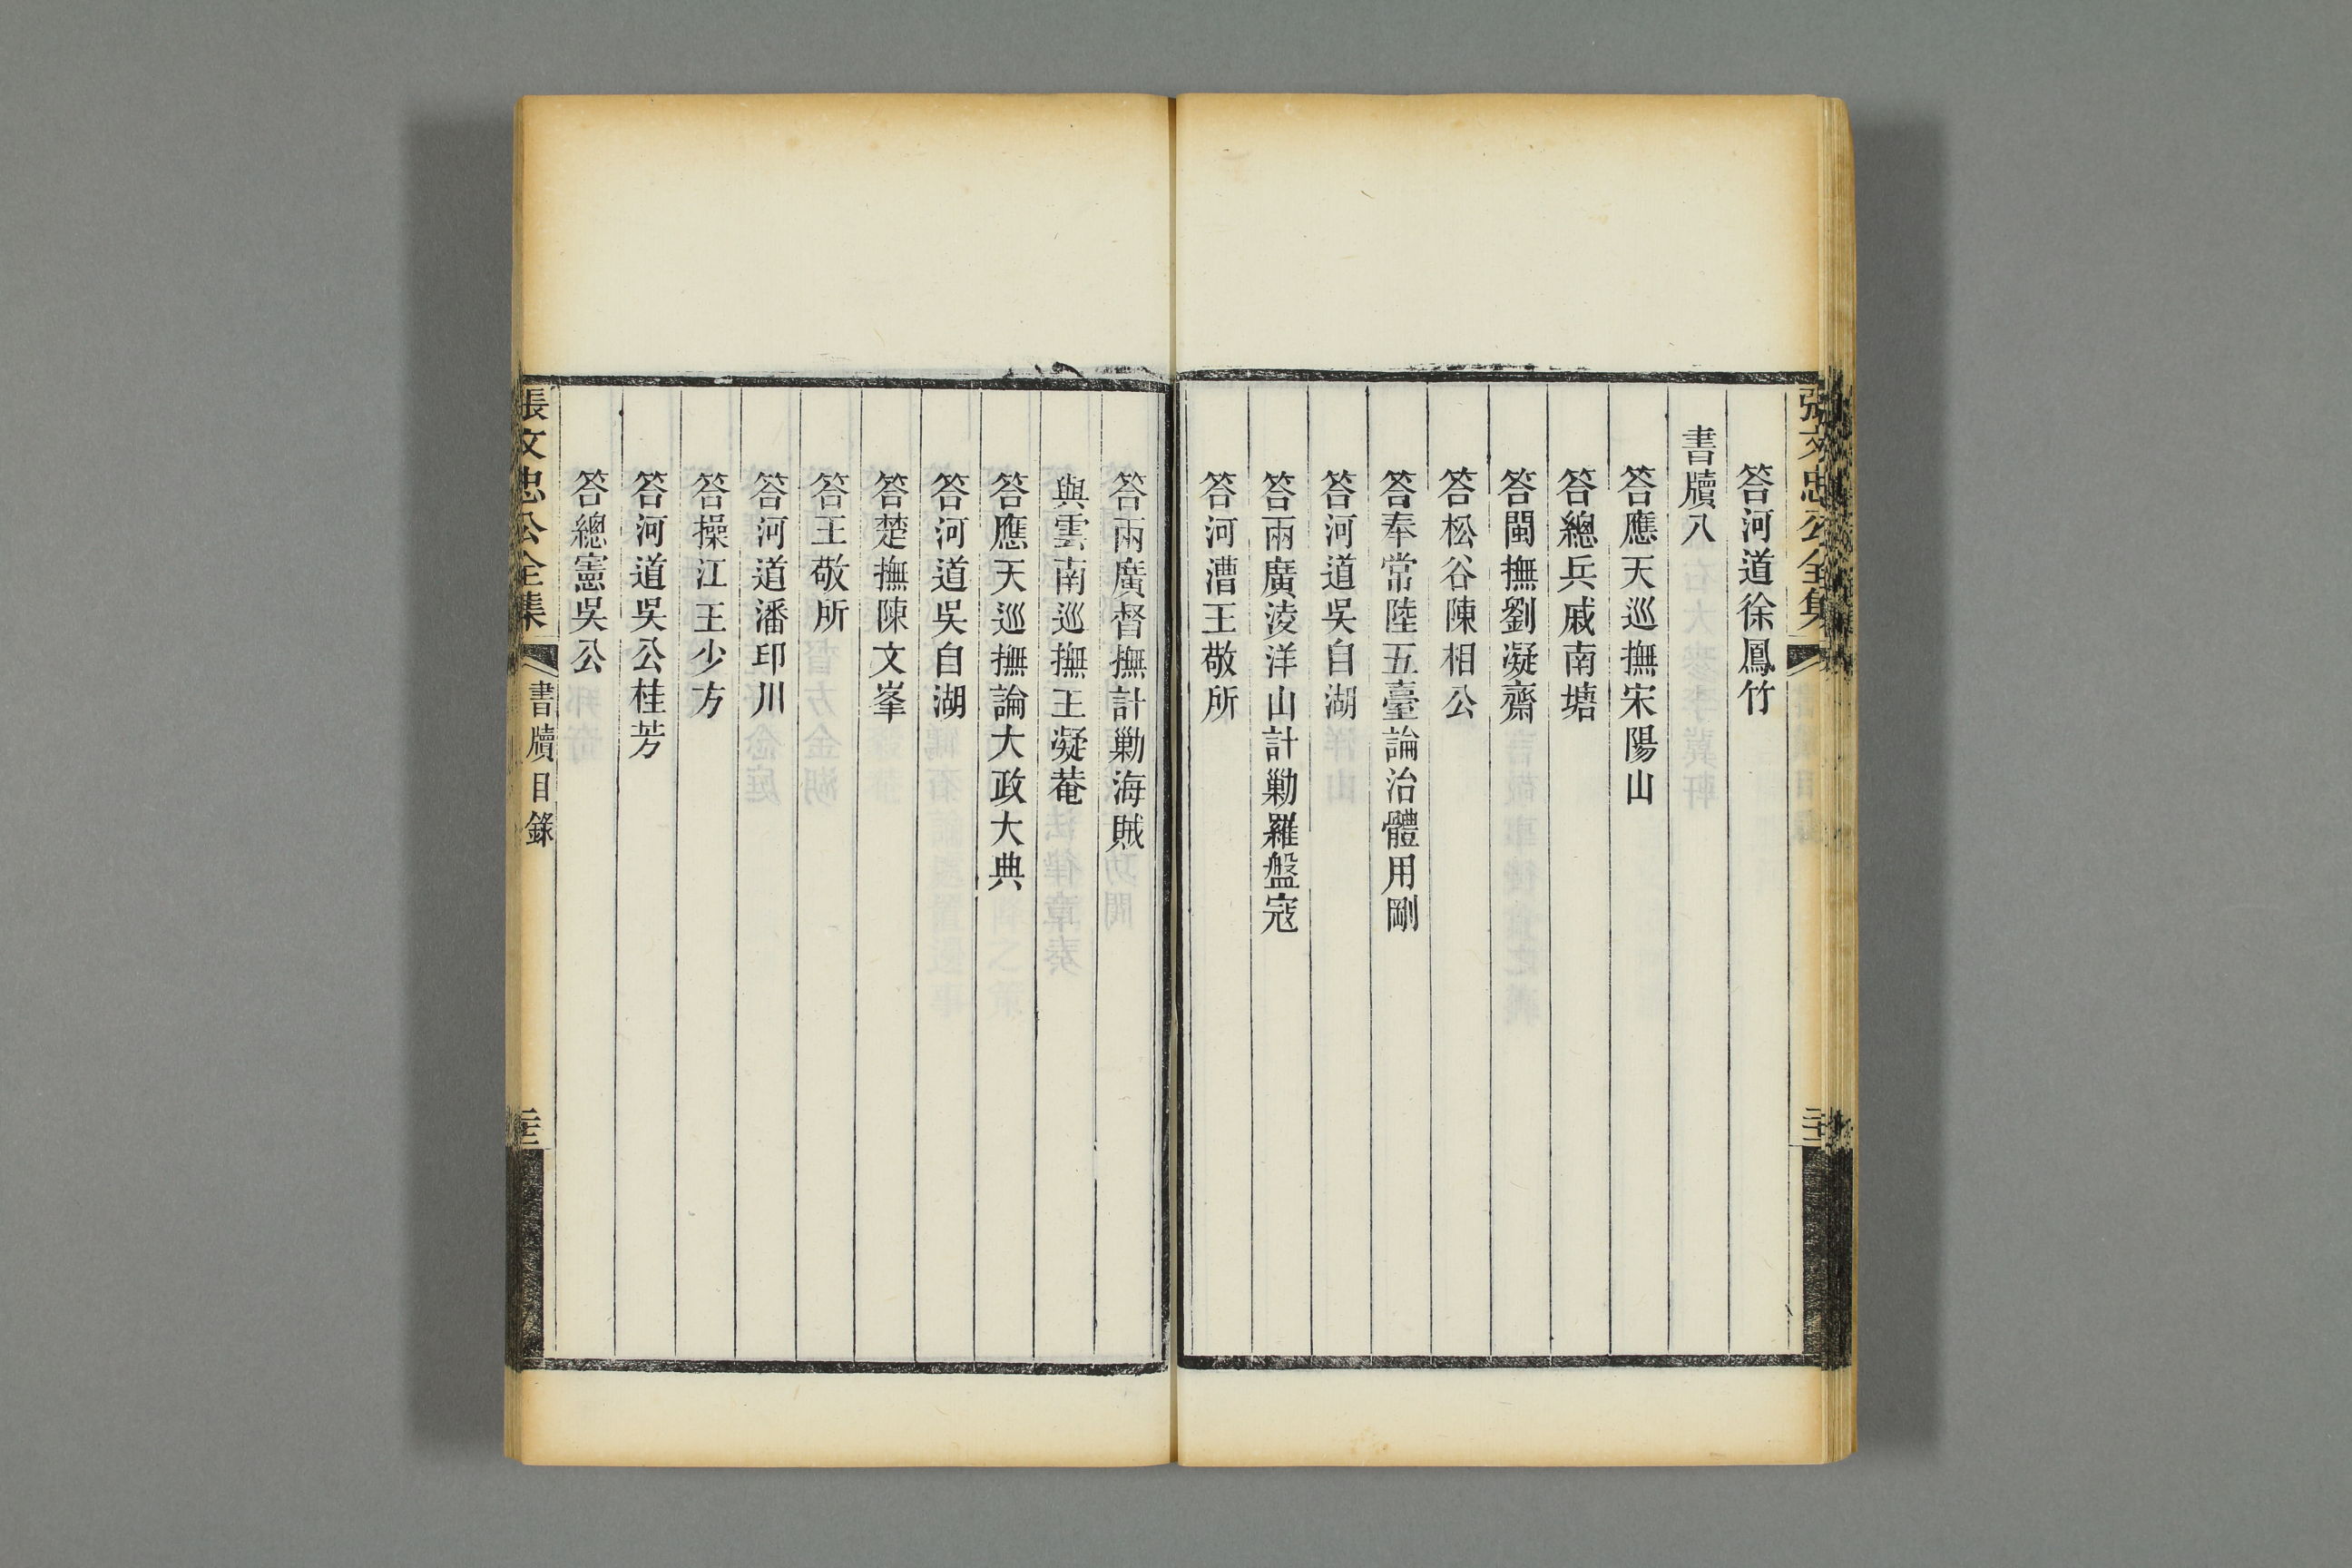 答河道徐鳳竹
書牘八
答應天巡撫宋陽山
答總兵戚南塘
答閩撫劉凝齋
答松谷陳相公
答奉常陸五臺論治體用剛
答河道吳自湖
答兩廣淩洋山計勦羅盤寇
答河漕王敬所
答兩廣督撫計勦海賊
與雲南巡撫王凝菴
答應天巡撫論大政大典
答河道吳自湖
答楚撫陳文峯
答王敬所
答河道潘印川
答操江王少方
答河道吳公桂芳
答總憲吳公
張文忠公全集
書牘目錄